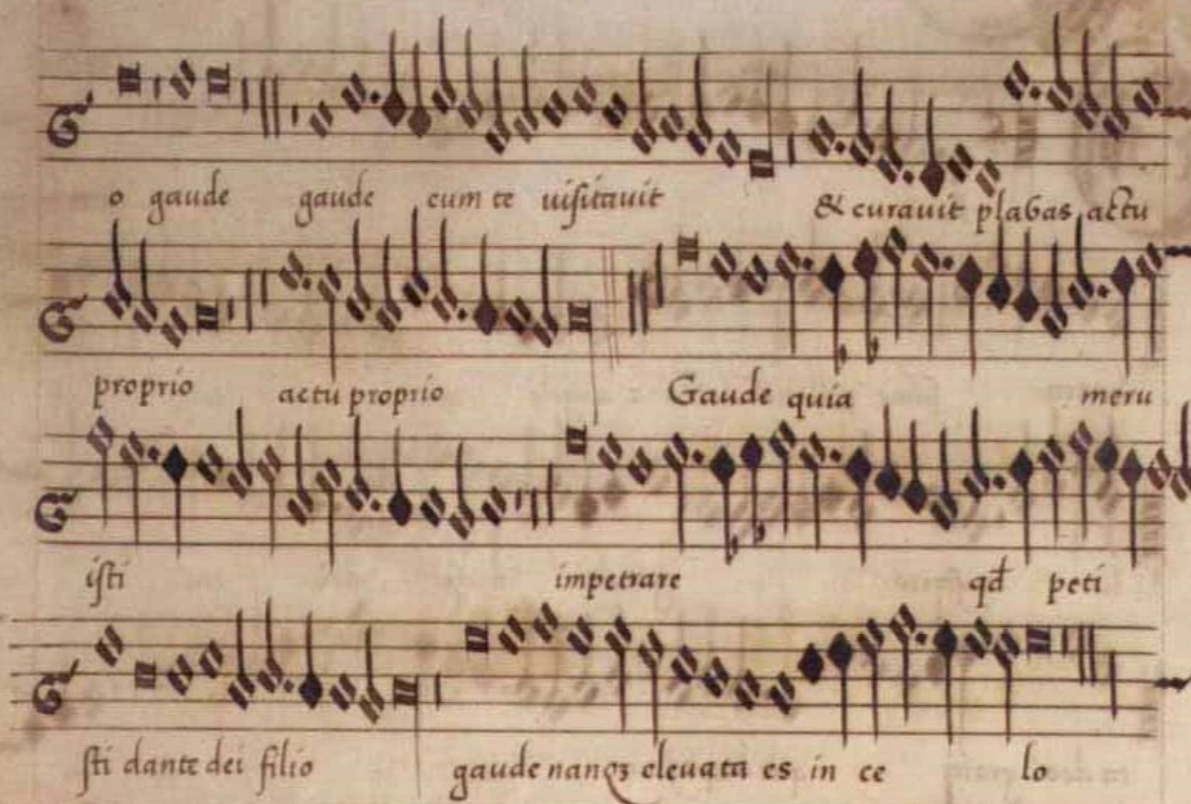 o gaude gaude cum te uisitauit & curauit plagas actu
proprio actu proprio Gaude quia meru
isti impetrare qd̄ peti
sti dante dei filio gaude nanqʒ eleuata es in ce lo